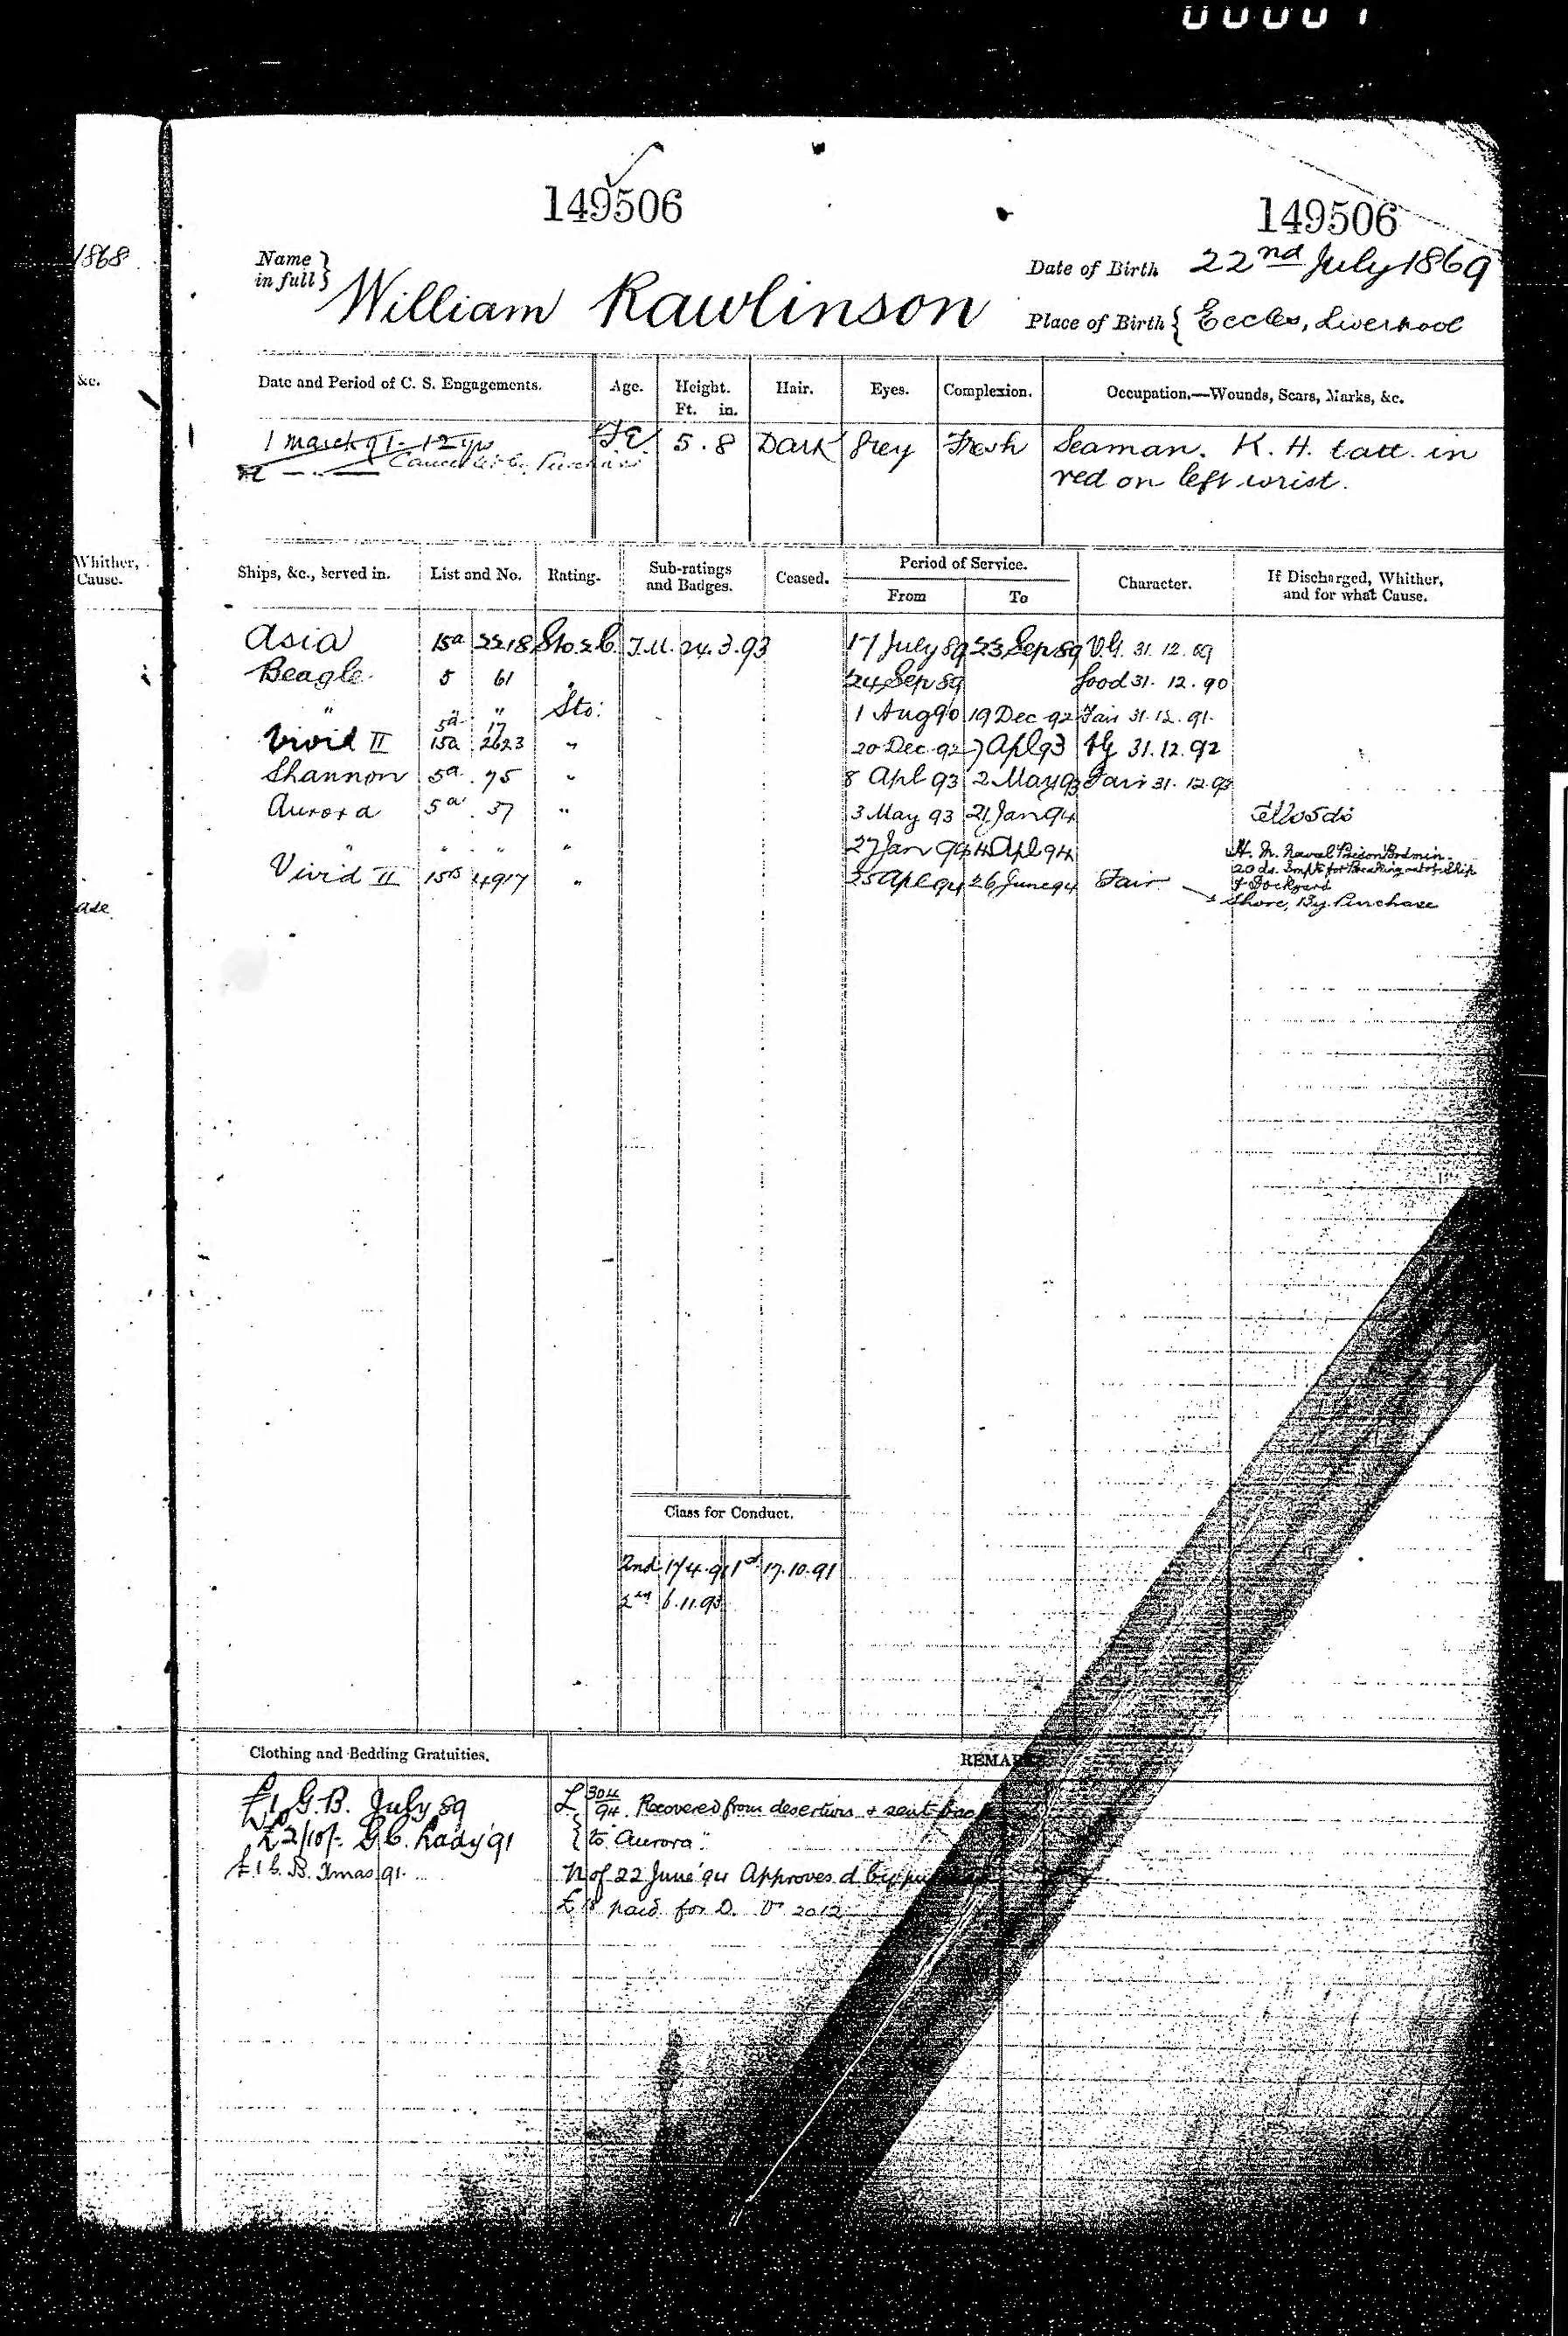 149506 149506
1868
Name in full } William Rawlinson
Date of Birth 22nd July 1869
Place of Birth { Eccles, Liverpool
&c.
Date and Period of C. S. Engagements. Age. Height. Ft. in. Hair. Eyes. Complexion. Occupation.—Wounds, Scars, Marks, &c.
1 March 91 - 12 yrs 5 . 8 Dark Grey Fresh Seaman. K. H. tatt. in
red on left wrist.
Whither, Cause.
Ships, &c., served in. List and No. Rating. Sub-ratings and Badges. Ceased. Period of Service. From To Character. If Discharged, Whither, and for what Cause.
Asia 15a 2218 Sto. 2 C. T.M. 24.3.93 17 July 89 23 Sep 89 V.G. 31.12.89
Beagle 5 61 " 24 Sep 89 Good 31.12.90
" 5a 17 Sto: 1 Aug 90 19 Dec 92 Fair 31.12.91
Vivid II 15a 2623 " 20 Dec 92 7 Apl 93 VG 31.12.92
Shannon 5a 75 " 8 Apl 93 2 May 93 Fair 31.12.93
Aurora 5a 37 " 3 May 93 21 Jan 94
" " " " 27 Jan 94 4 Apl 94 H. M. Naval Prison Bodmin
20 ds. Impt for Breaking out of Ship
& Dockyard
Vivid II 15B 4917 " 25 Apl 94 26 June 94 Fair Shore, By Purchase
Class for Conduct.
2nd 17.4.91 1st 17.10.91
2nd 6.11.93
Clothing and Bedding Gratuities. REMA
£1 G.B. July 89
£2/10/- G.C. Lady '91
£1 C. B. Xmas 91.
L 304/94. Recovered from desertion & sent back
to "Aurora".
N of 22 June '94 Approves d by
paid for D.